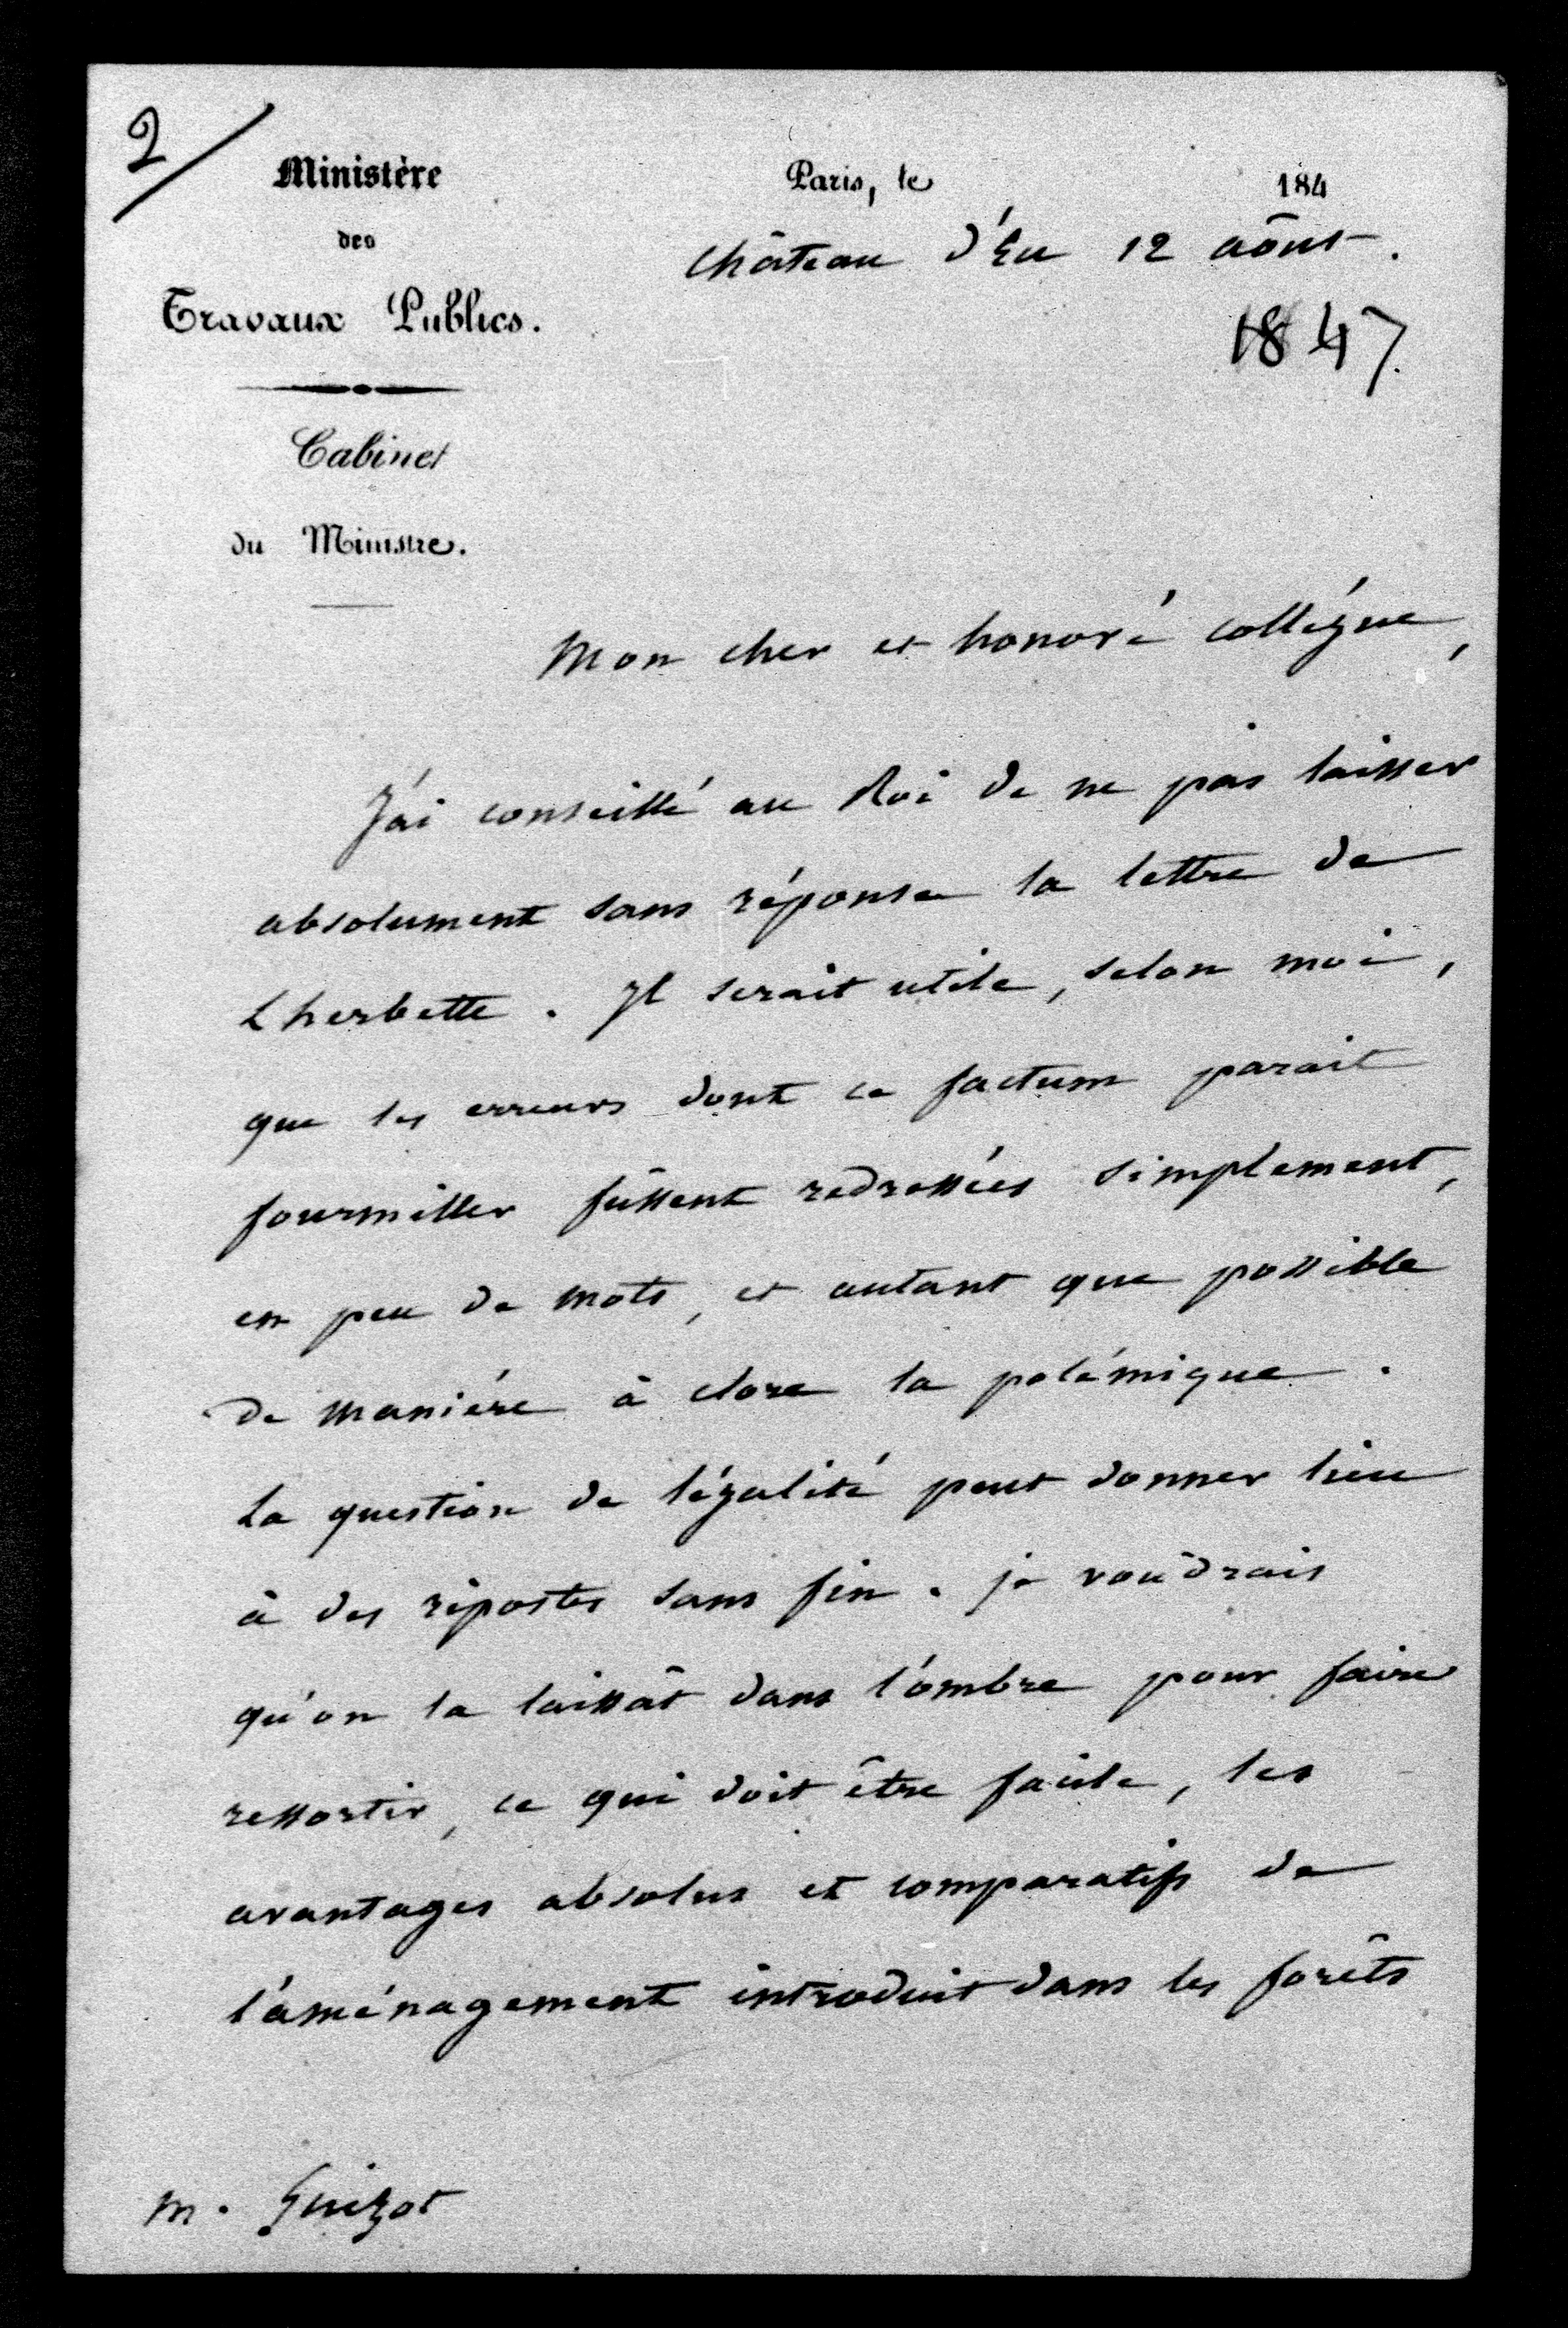 2/
Ministère
des
Travaux Publics.
Cabinet
du Ministre.
Paris, le 184
Château d'Eu 12 août.
1847.
Mon cher et honoré collègue,
J'ai conseillé au Roi de ne pas laisser
absolument sans réponse la lettre de
Lherbette. Il serait utile, selon moi,
que les erreurs dont ce factum parait
fourmiller fussent redressées simplement,
en peu de mots, et autant que possible
de manière à clore la polémique.
La question de légalité peut donner lieu
à des ripostes sans fin. je voudrais
qu'on la laissât dans l'ombre pour faire
ressortir, ce qui doit être facile, les
avantages absolus et comparatifs de
l'aménagement introduit dans les forêts
M. Guizot